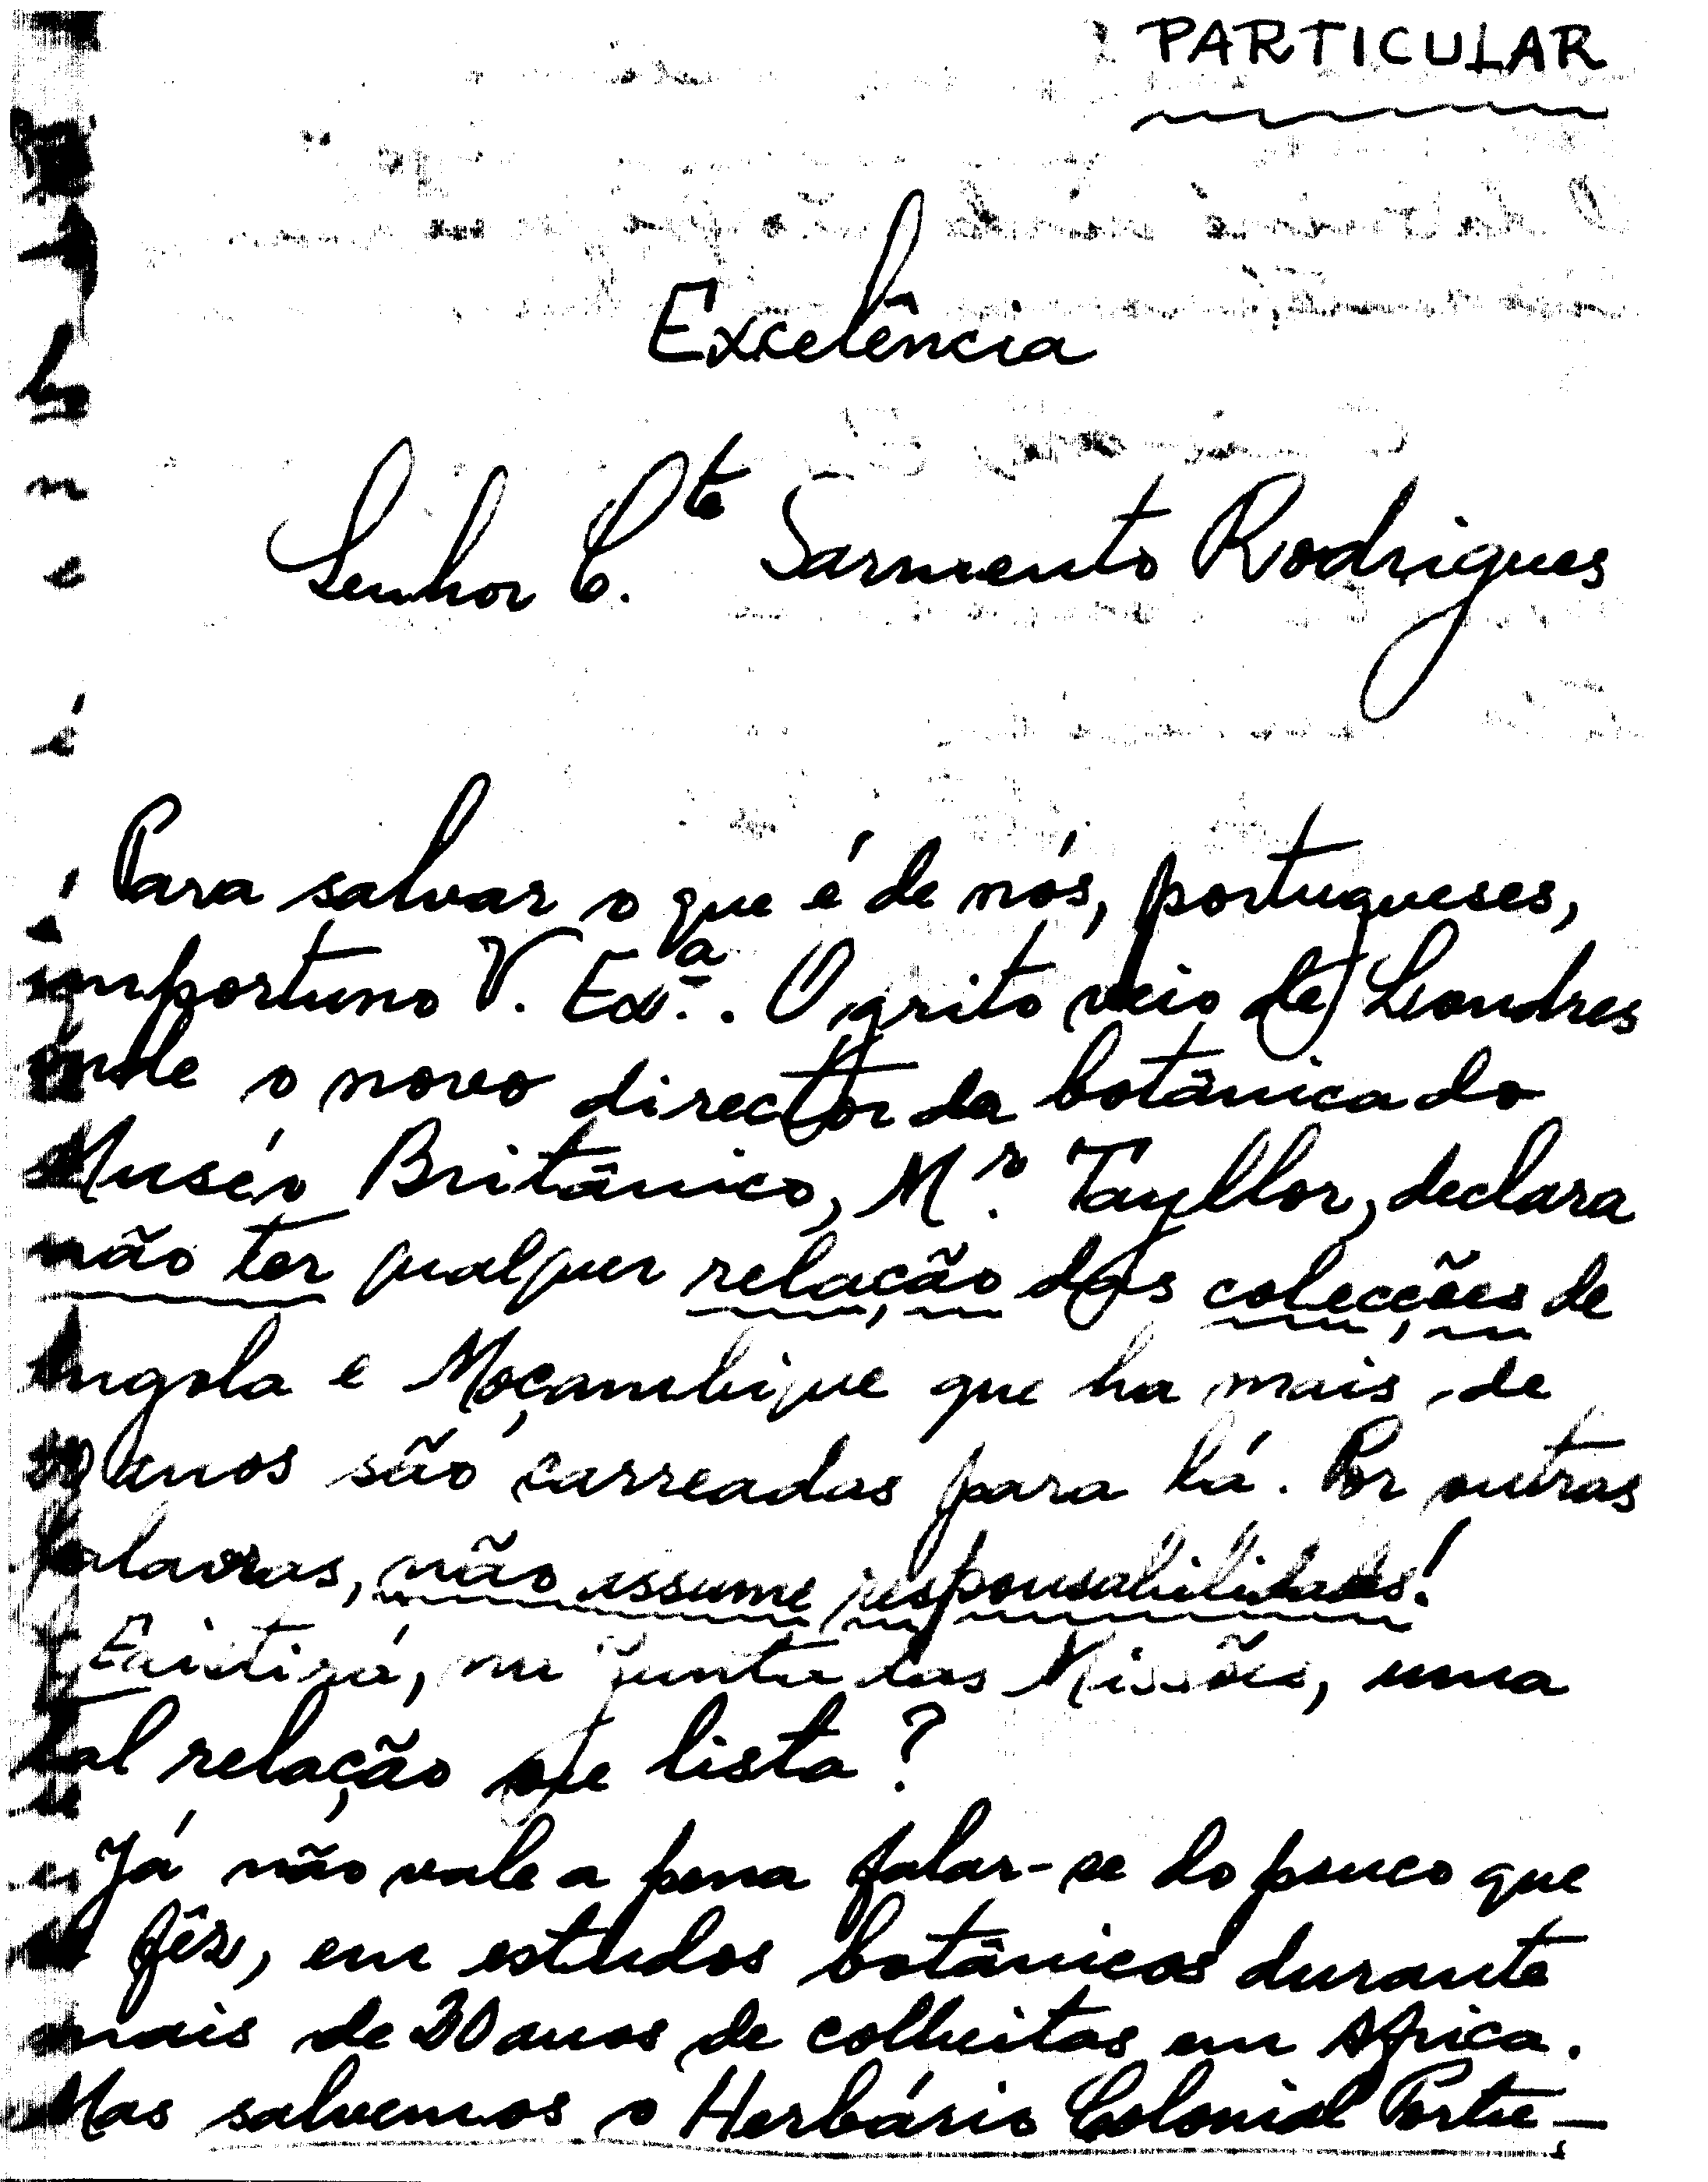 PARTICULAR
Excelência
Senhor C.te Sarmento Rodrigues
Para salvar o que é de nós, portugueses,
importuno V. Exª. O grito veio de Londres
onde o novo director da botânica do
Muséo Britânico, Mr. Tayllor, declara
não ter qualquer relação das colecções de
Angola e Moçambique que ha mais de
30 anos são carreadas para lá. Por outras
palavras, não assume responsabilidades!
Existirá, na Junta das Missões, uma
tal relação ou lista?
Já não vale a pena falar-se do pouco que
se fêz, em estudos botânicos durante
mais de 30 anos de colheitas em Africa.
Mas salvemos o Herbário Colonial Portu-